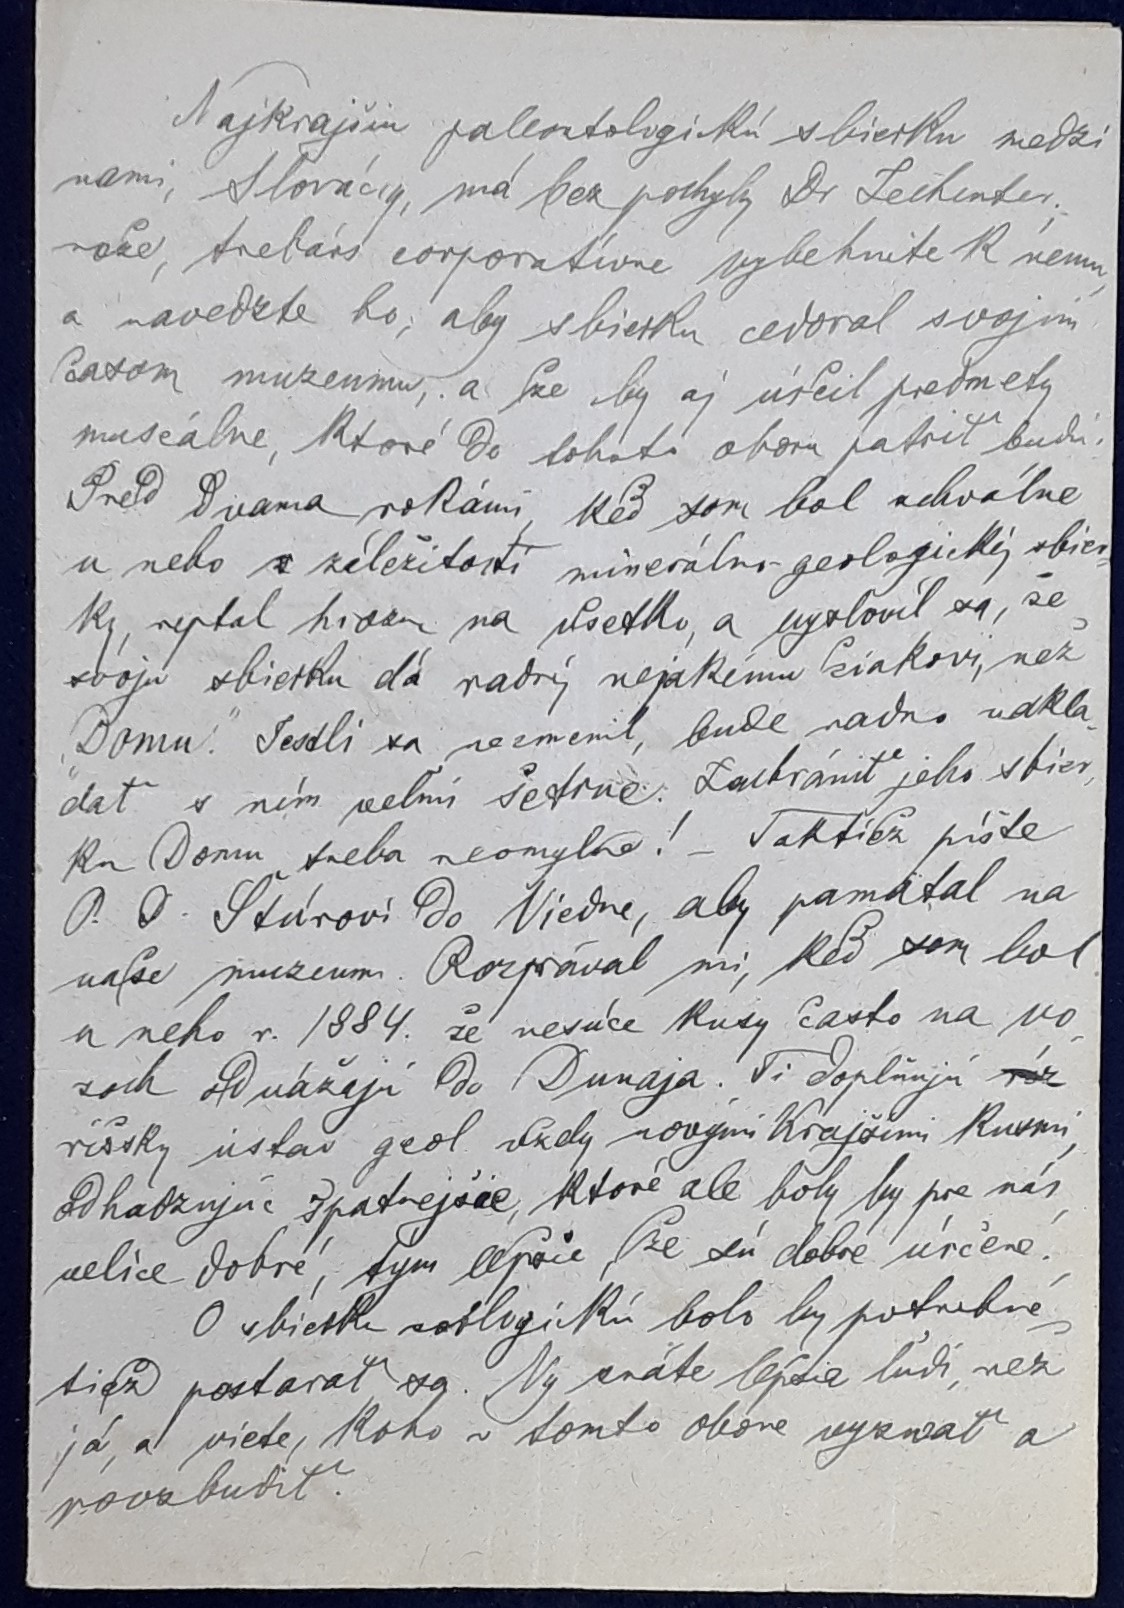 Najkrajšiu paleontologickú sbierku medzi
nami, Slováci, má bez pochyby Dr Zechenter;
nože, trebárs corporatívne vybehnite k nemu,
a naveďzte ho, aby sbierku cedoral svojim
časom muzeumu, a že by aj určil predmety
museálne, ktoré do tohoto oboru patriť budú.
Pred dvama rokámi, keď som bol uchválne
u neho v záležitosti minerálno-geologickéj sbier-
ky, reptal hrozne na všetko, a vyslovil sa, že
svoju sbierku dá radnéj nejakému žiakovi, než
„Domu." Jestli sa nezmenil, bude radno nakla-
dať s ním veľmi šetrne. Zachrániť jeho sbier-
ku Domu treba neomylne! – Taktiež píšte
P. D. Štúrovi do Viedne, aby pamätal na
naše muzeum. Rozprával mi, keď som bol
u neho r. 1884. že nesúce kusy často na vo-
zoch odvážajú do Dunaja. Ti doplňujú
ríšsky ústav geol. vždy novými krajšími kusmi,
odhadzujúc špatnejšie, ktoré ale boly by pre nás
velice dobré, tým lepšie, že sú dobre určené.
O sbierku zoologickú bolo by potrebné
tiež postarať sa. Vy znáte lepšie ľudí, než
já, a viete, koho v tomto obore vyzvať a
povzbudiť.